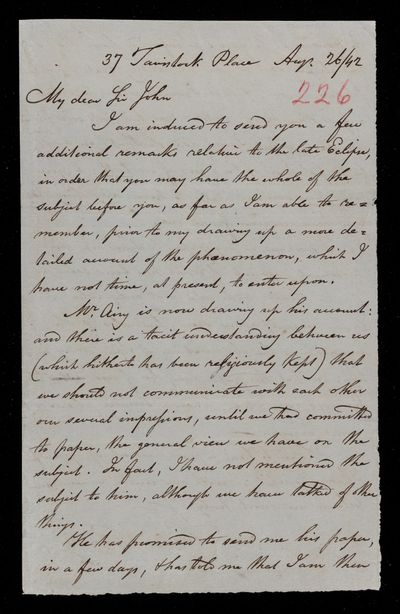 37 Tavistock Place Aug. 26/42
226
My dear Sir John
I am induced to send you a few
additional remarks relative to the late Eclipse,
in order that you may have the whole of the
subject before you, as far as I am able to re=
member, prior to my drawing up a more de=
tailed account of the phænomenon, which I
have not time, at present, to enter upon.
Mr. Airy is now drawing up his account:
and there is a tacit understanding between us
(which hitherto has been religiously kept) that
we should not communicate with each other
our several impressions, until we had committed
to paper, the general view we have on the
subject. In fact, I have not mentioned the
subject to him, although we have talked of other
things.
He has promised to send me his paper,
in a few days, & has told me that I am then